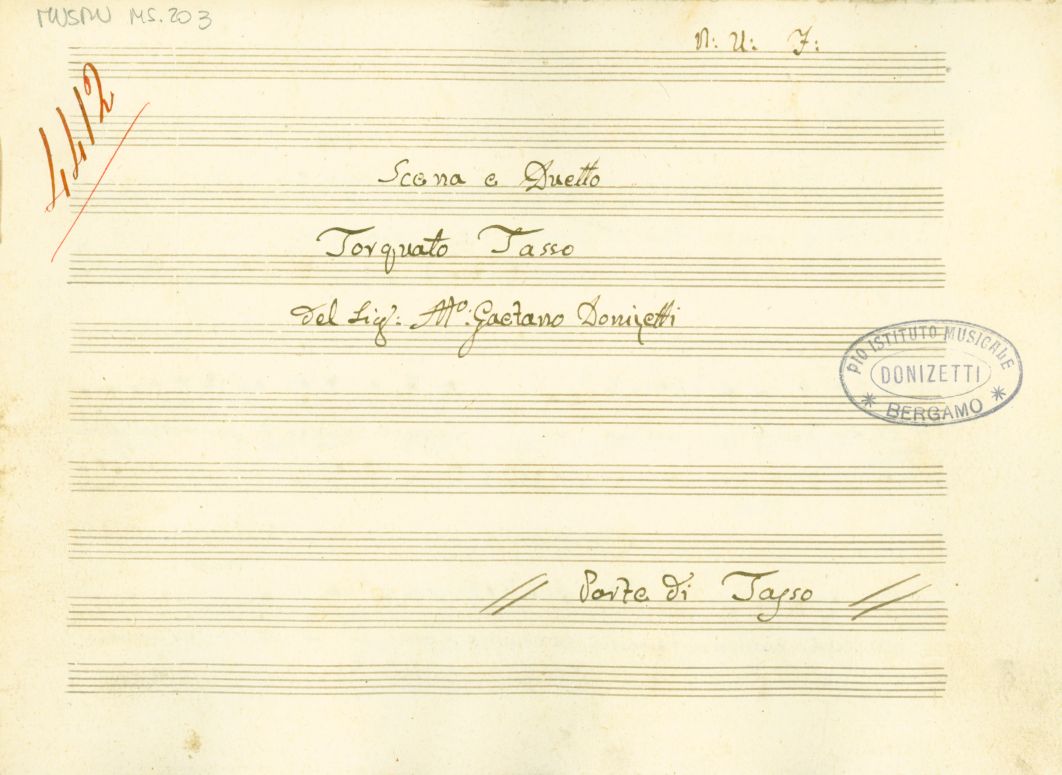 MUSDU MS.203
N: U: F:
4412
Scena e Duetto
Torquato Tasso
del Sig.r: M.o: Gaetano Donizetti
PIO ISTITUTO MUSICALE
DONIZETTI
* BERGAMO *
// Parte di Tasso //